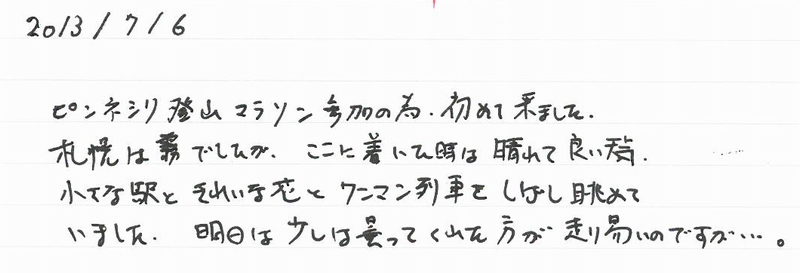 2013/7/6
ピンネシリ登山マラソン参加の為、初めて来ました.
札幌は霧でしたが、ここに着いた時は晴れて良い天気.
小さな駅ときれいな花とワンマン列車をしばし眺めて
いました. 明日は少しは曇ってくれた方が走り易いのですが…。